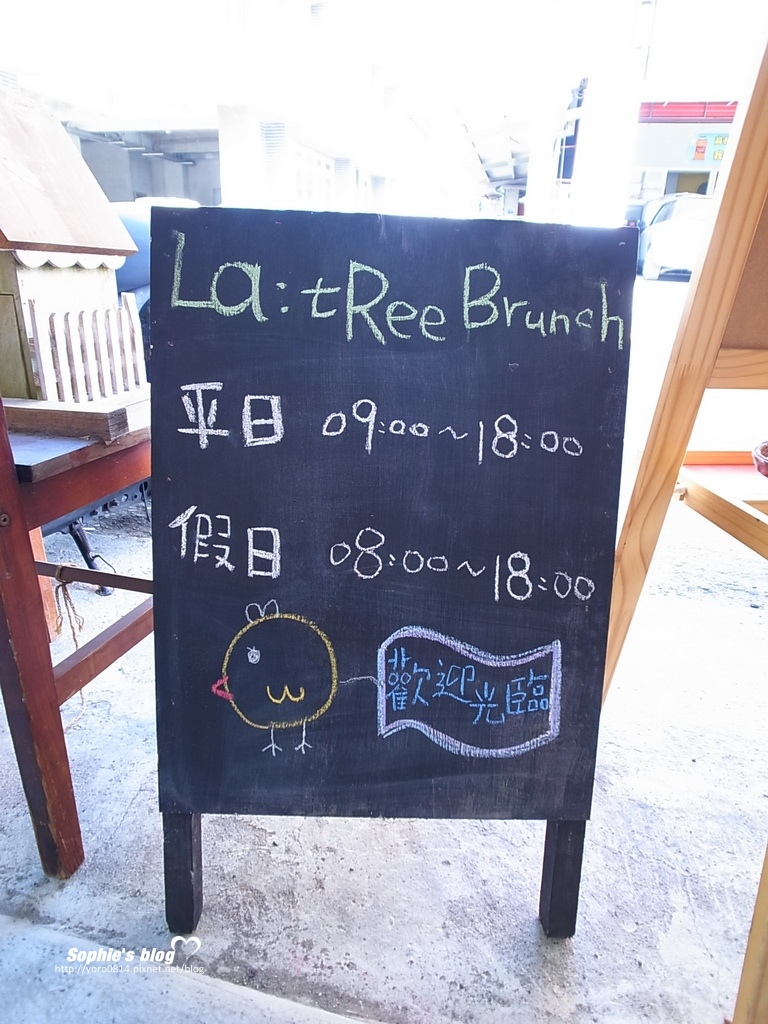 La:tRee Brunch
平日 09:00~18:00
假日 08:00~18:00
歡迎光臨
Sophie's blog
http://yoro0814.pixnet.net/blog